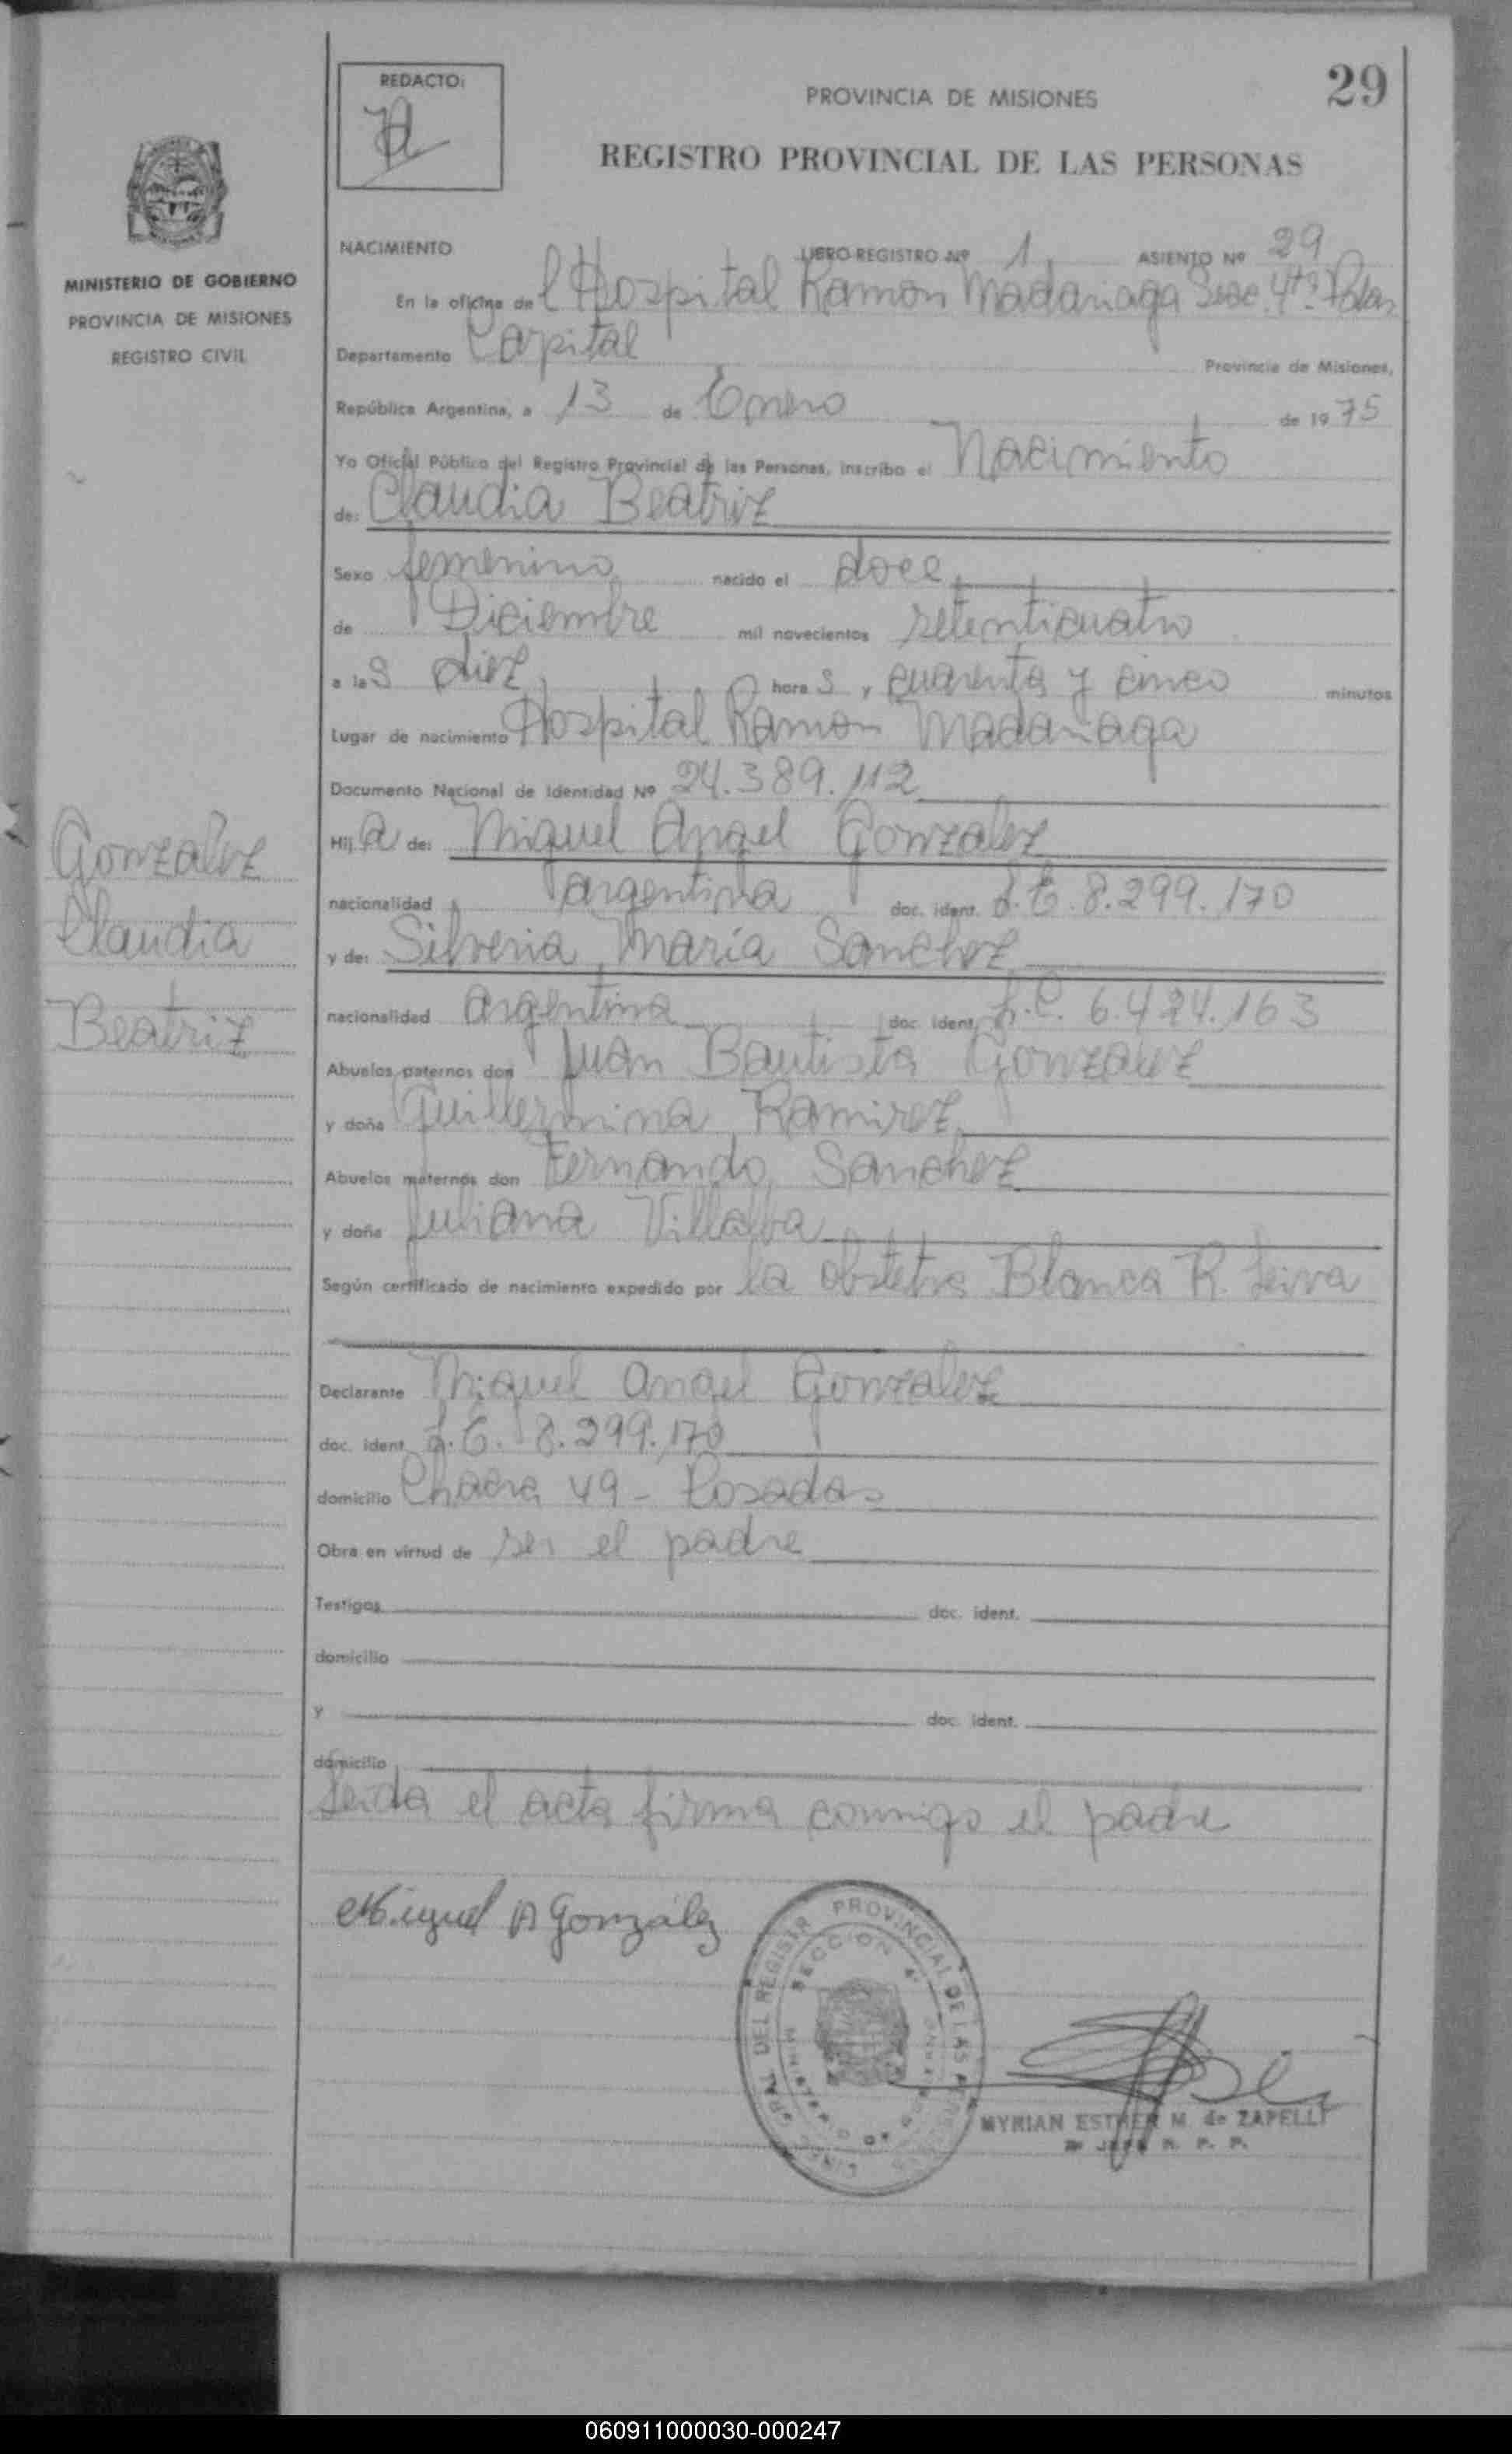 29
REDACTO:
PROVINCIA DE MISIONES
REGISTRO PROVINCIAL DE LAS PERSONAS
MINISTERIO DE GOBIERNO
PROVINCIA DE MISIONES
REGISTRO CIVIL
NACIMIENTO LIBRO REGISTRO Nº 1 ASIENTO Nº 29
En la oficina del Hospital Ramon Madariaga Secc. 4ta
Departamento Capital Provincia de Misiones,
República Argentina, a 13 de Enero de 1975
Yo Oficial Público del Registro Provincial de las Personas, inscribo el Nacimiento
de: Claudia Beatriz
Sexo femenino nacido el doce
de Diciembre mil novecientos setenticuatro
a las diez horas y cuarenta y cinco minutos
Lugar de nacimiento Hospital Ramon Madariaga
Documento Nacional de Identidad Nº 24.389.112
Hija de: Miguel Angel Gonzalez
nacionalidad argentina doc. ident. L.E. 8.299.170
y de: Silveria Maria Sanchez
nacionalidad argentina doc. ident. L.C. 6.424.163
Abuelos paternos don Juan Bautista Gonzalez
y doña Guillermina Ramirez
Abuelos maternos don Fernando Sanchez
y doña Juliana Villalba
Según certificado de nacimiento expedido por la obstetra Blanca R. Leiva
Declarante Miguel Angel Gonzalez
doc. ident. L.E. 8.299.170
domicilio Chacra 49 - Posadas
Obra en virtud de ser el padre
Testigos doc. ident.
domicilio
y doc. ident.
domicilio
Leida el acta firma conmigo el padre
Gonzalez
Claudia
Beatriz
Miguel A González
DIREC. GRAL. DEL REGISTR. PROVINCIAL DE LAS PERSONAS
SECCION 4
MYRIAN ESTHER M. de ZAPELLI
JEFE R. P. P.
060911000030-000247